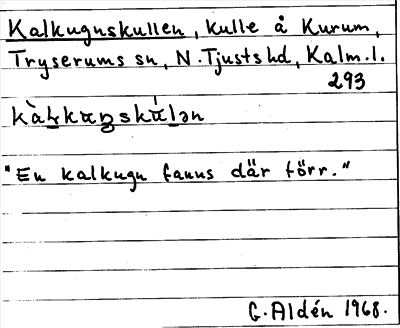 Kalkugnskullen, kulle å Kurum,
Tryserums sn, N. Tjusts hd, Kalm.l.
293
"En kalkugn fanns där förr."
G. Aldén 1968.